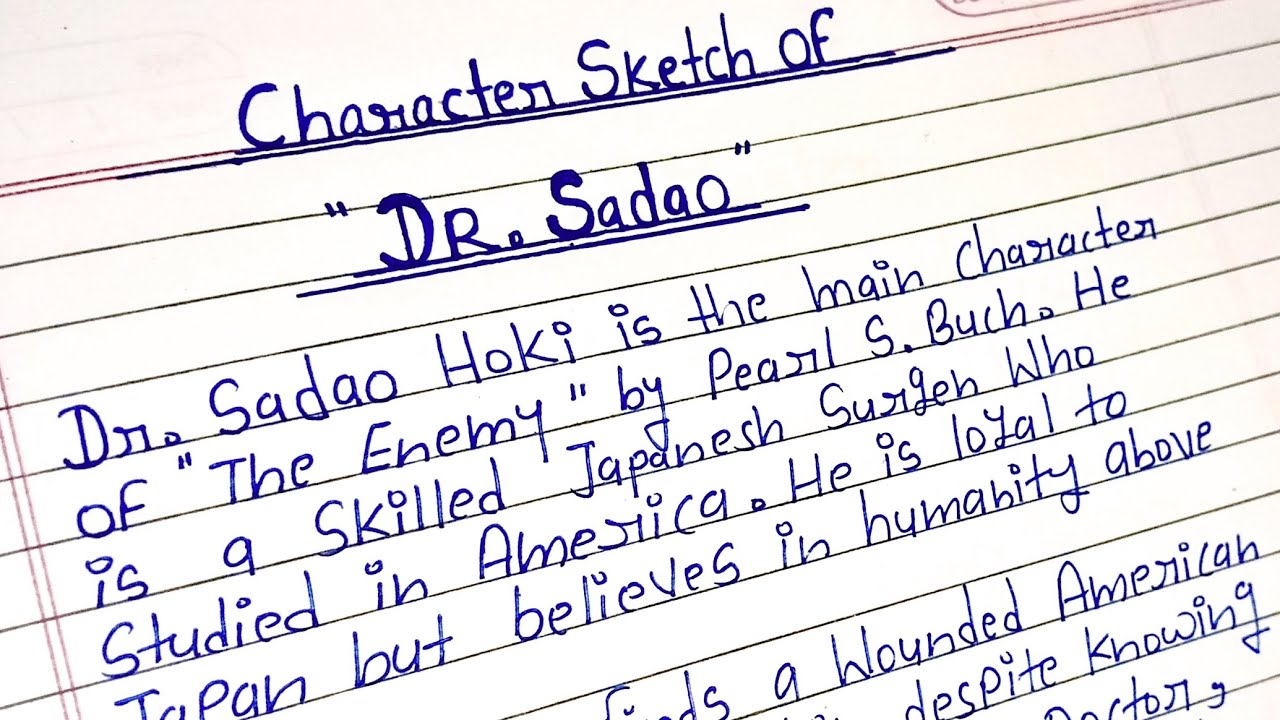 Character Sketch of
"DR. Sadao"
Dr. Sadao Hoki is the main character
of "The Enemy" by Pearl S. Buch. He
is a skilled Japanesh Surgeh Who
Studied in America. He is loyal to
Japan but believes in humanity above
a Wounded American
despite knowing